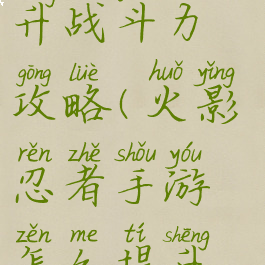 升战斗力
gōng lüè huǒ yǐng
攻略(火影
rěn zhě shǒu yóu
忍者手游
zěn me tí shēng
怎么提升